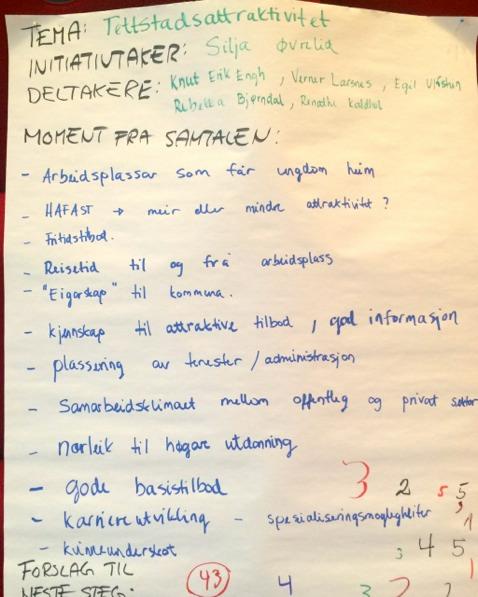 TEMA: Tettstadsattraktivitet
INITIATIVTAKER: Silja Øvrelid
DELTAKERE: Knut Erik Engh, Verner Larsnes, Egil
Rebekka Bjørndal, Renathe
MOMENT FRA SAMTALEN:
- Arbeidsplassar som får ungdom heim
- HAFAST → meir eller mindre attraktivitet?
- Fritidstilbod.
- Reisetid til og frå arbeidsplass
- "Eigarskap" til kommuna.
- kjennskap til attraktive tilbod, god informasjon
- plassering av tenester / administrasjon
- Samarbeidsklimaet mellom offentleg og privat sektor
- nærleik til høgare utdanning
- gode basistilbod 3 2 5 5
- karriereutvikling - spesialiseringsmoglegheiter 1
- kvinneunderskot 3 4 5
FORSLAG TIL
NESTE STEG: 43 4 3 2